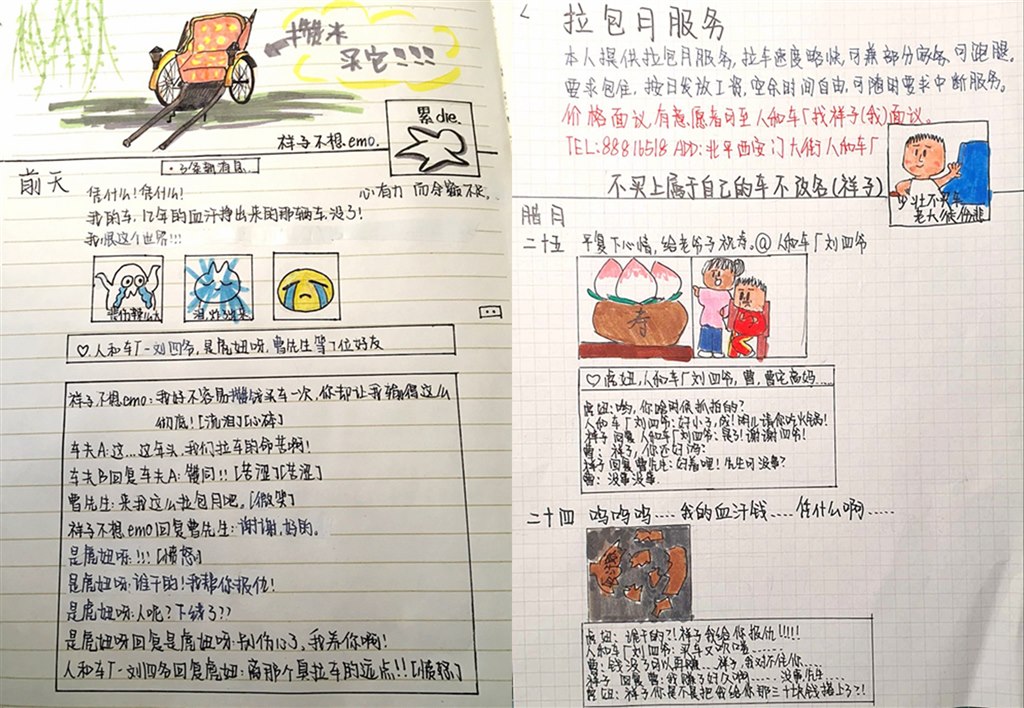 攒米
买它!!!
累die.
祥子不想emo.
·3条新消息·
前天
凭什么!凭什么!
心有力而余额不足.
我的车,
的血汗挣出来的那辆车,没了!
我恨这个世界!!!
♡人和车厂-刘四爷,是虎妞呀,曹先生等7位好友
祥子不想emo:我好不容易攒钱买车一次,你却让我输得这么
彻底![流泪][心碎]
车夫A:这...这年头,我们拉车的命苦啊!
车夫B回复车夫A:
[苦涩][苦涩]
曹先生:来我这儿拉包月吧。[微笑]
祥子不想emo回复曹先生:谢谢,好的。
是虎妞呀:!!![愤怒]
是虎妞呀:谁干的!我帮你报仇!
是虎妞呀:人呢?下线了??
是虎妞呀回复是虎妞呀:别伤心了,我养你啊!
人和车厂-刘四爷回复虎妞:离那个臭拉车的远点!![愤怒]
拉包月服务
本人提供拉包月服务,拉车速度略快,可兼部分家务,可跑腿.
要求包住,按日发放工资,空余时间自由,可随时要求中断服务。
价格面议,有意愿者可至人和车厂找祥子(我)面议。
TEL:88816518 ADD:北平西安门大街人和车厂
不买上属于自己的车不改名(祥子)
少壮不买车
老大徒伤悲
腊月
二十五 平复下心情,给老爷子祝寿.@人和车厂刘四爷
寿
♡虎妞,人和车厂刘四爷,曹,曹宅高妈....
虎妞:哟,你啥时候抓拍的?
人和车厂刘四爷:好小子,成!明儿请你吃火锅!
祥子回复人和车厂刘四爷:
谢谢四爷!
曹:祥子,你还好吗?
祥子回复曹先生:好着哩!先生可没事?
曹:没事没事.
二十四 呜呜呜....我的血汗钱....凭什么啊.....
虎妞:谁干的?!祥子我给你报仇!!!!!
人和车厂刘四爷:买车又吹喽......
曹:钱没了可以再赚...祥子,我对不住你....
祥子回复曹:我赚了好久啊......没事,先生...
虎妞:祥子你是不是把我给你那三十块钱搭上了?!